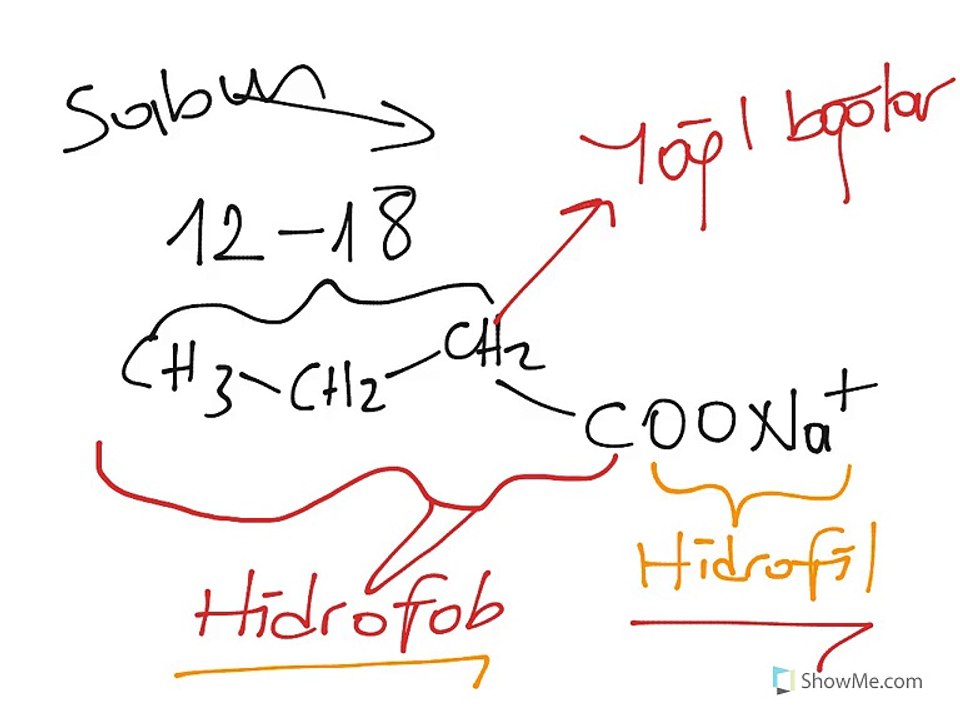 Sabun
Yağı bağlar
12-18
CH3-CH2-CH2-COONa+
Hidrofob
Hidrofil
ShowMe.com